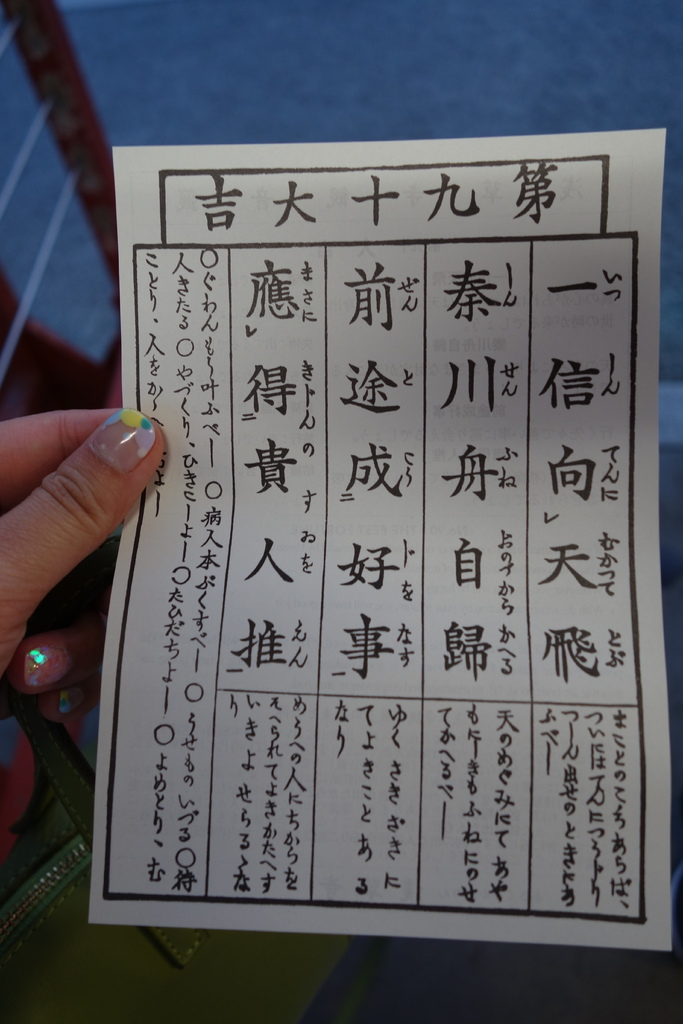 第九十大吉
一信向天飛
いつ しん てんに むかつて とぶ
まことのこころあらば、
ついには天につうじり
つしん出せのときにあ
ふべし
秦川舟自歸
しん せん ふね おのずから かへる
天のめぐみにて あや
もにしきもふねにのせ
てかへるべし
前途成好事
ぜん と こう じを なす
ゆくさきざきに
てよきことある
なり
應得貴人推
まさに きじんの すゐを えん
めうへの人にちからを
そへられてよきかたへす
いきよせらるゝな
り
〇ぐわんもう叶ふべし 〇病人本ぶくすべし 〇うせものいづる〇待
人きたる 〇やづくり、ひきこしよし〇たびだちよし 〇よめとり、む
ことり、人をかゝ